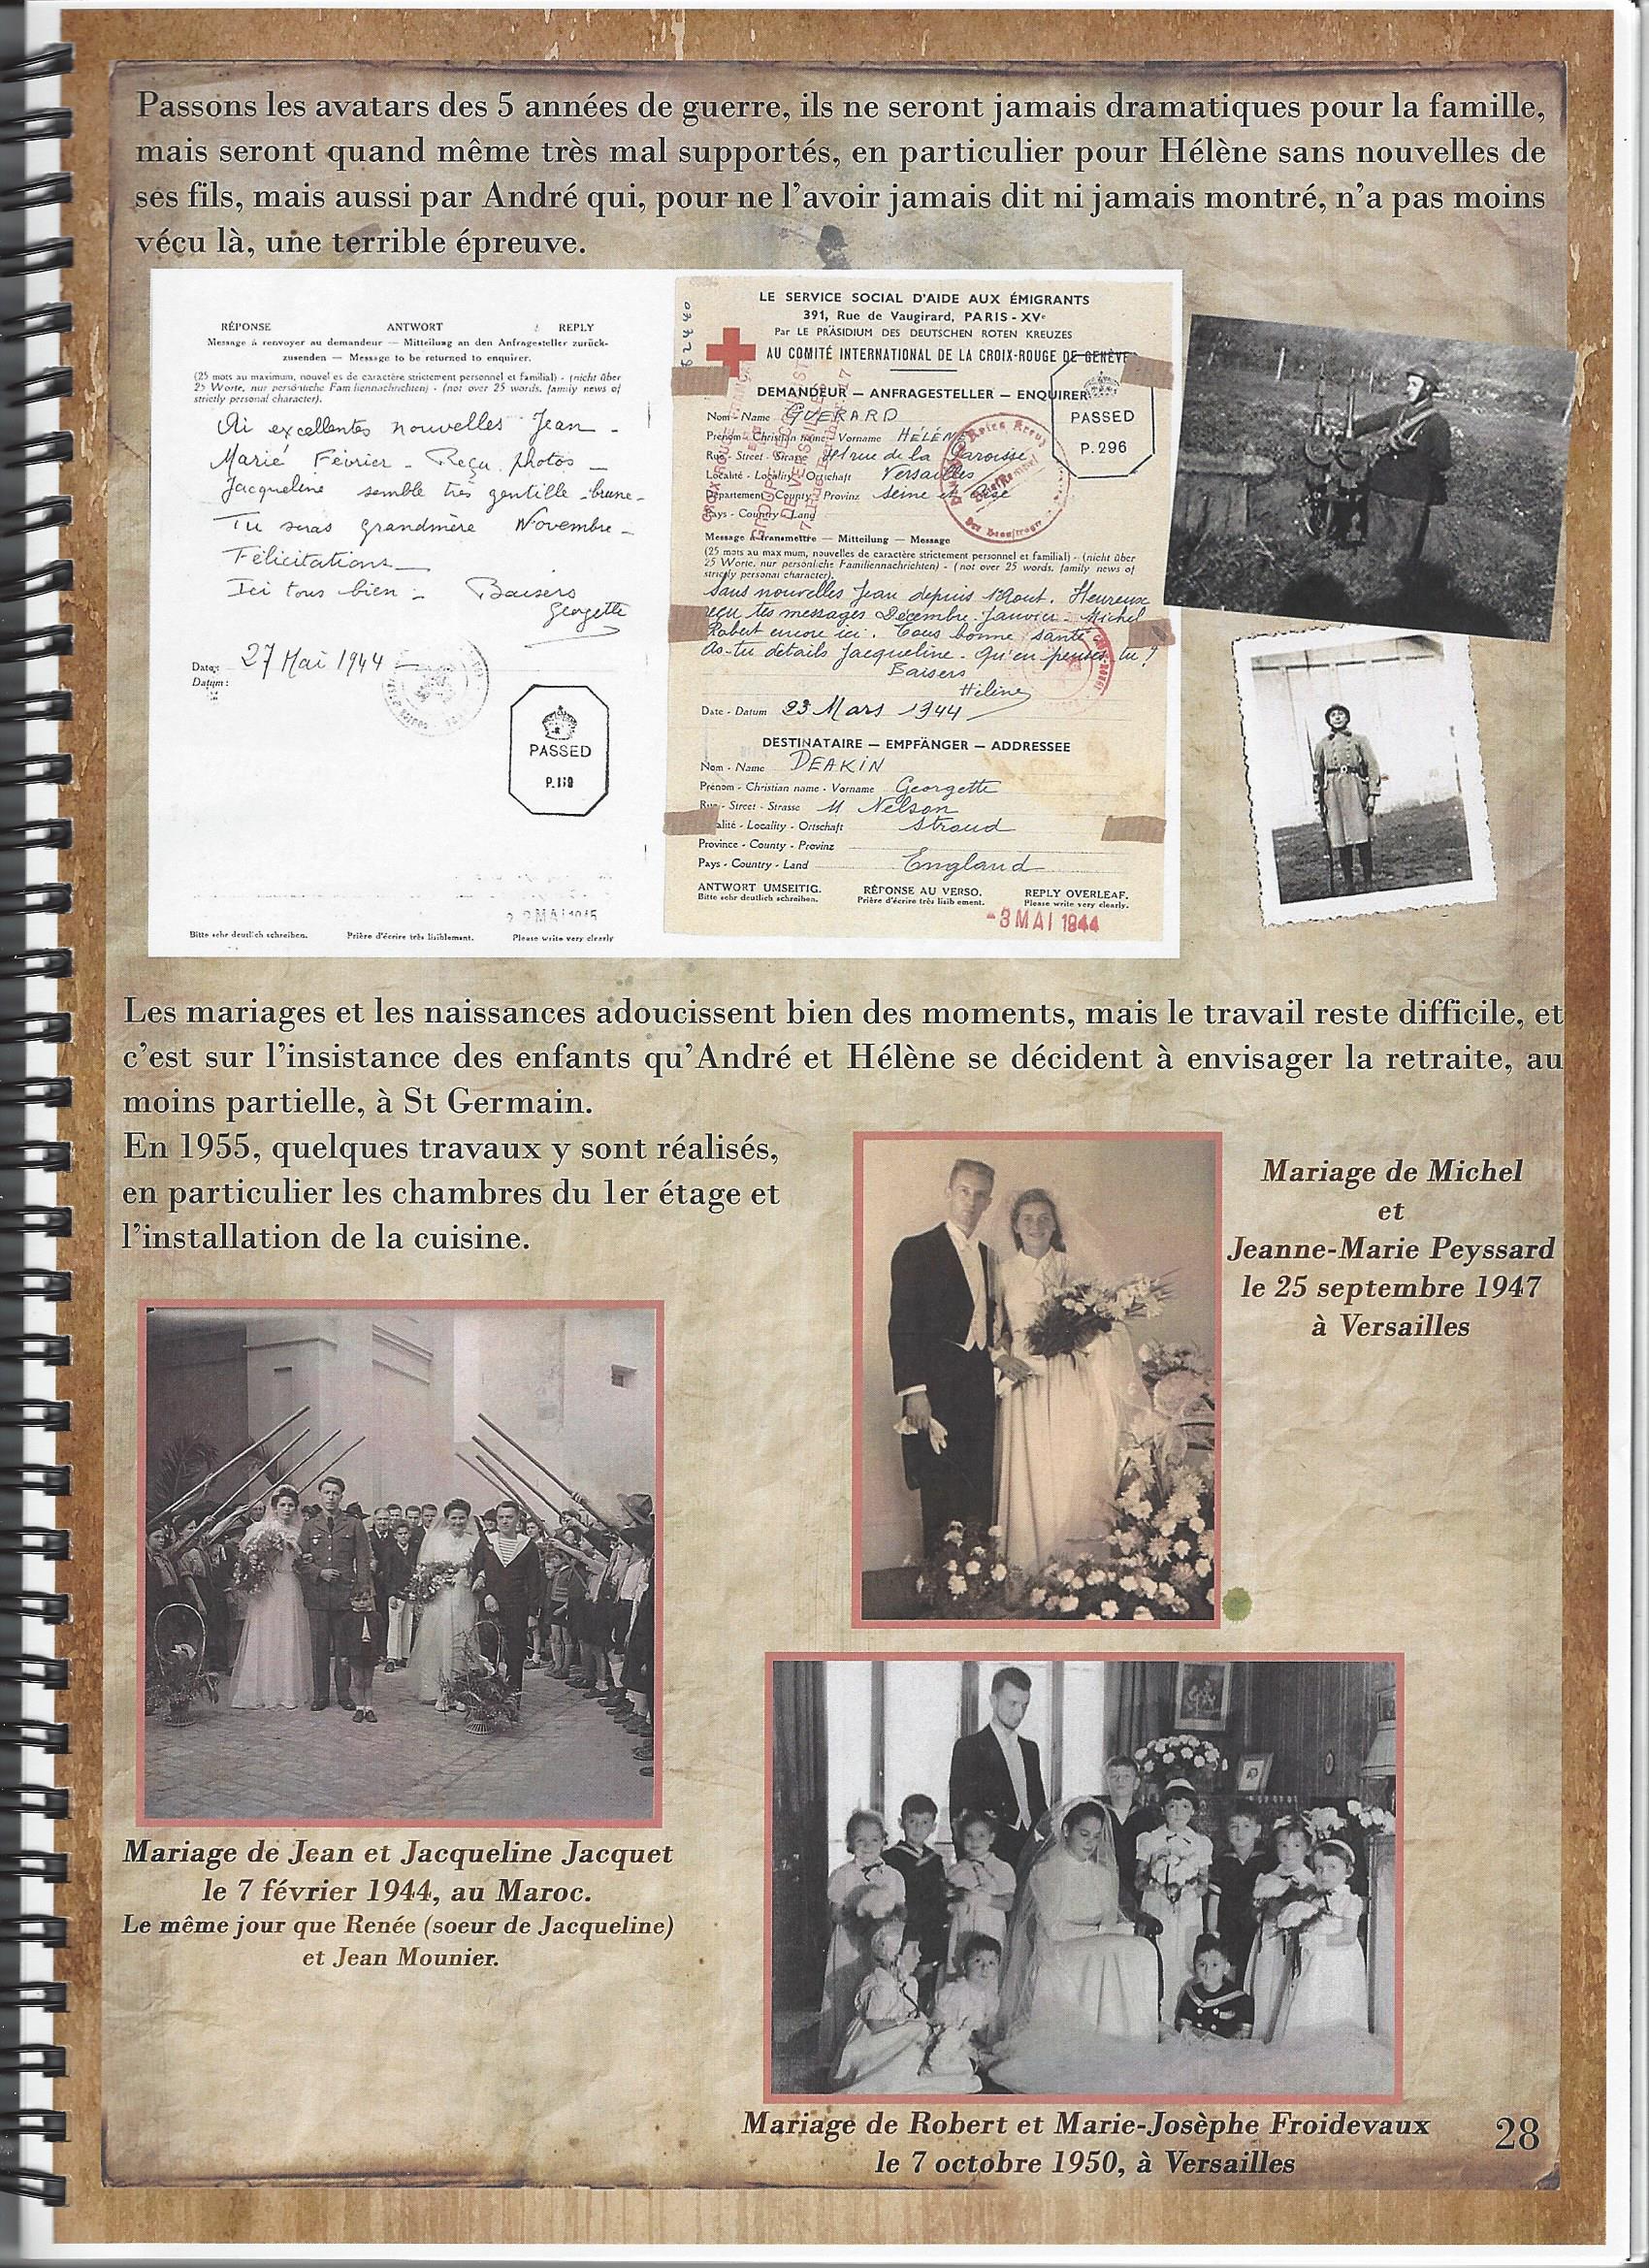 Passons les avatars des 5 années de guerre, ils ne seront jamais dramatiques pour la famille,
mais seront quand même très mal supportés, en particulier pour Hélène sans nouvelles de
ses fils, mais aussi par André qui, pour ne l'avoir jamais dit ni jamais montré, n'a pas moins
vécu là, une terrible épreuve.
RÉPONSE ANTWORT REPLY
Message à renvoyer au demandeur — Mitteilung an den Anfragesteller zurück-
zusenden — Message to be returned to enquirer.
(25 mots au maximum, nouvelles de caractère strictement personnel et familial) - (nicht über
25 Worte, nur persönliche Familiennachrichten) - (not over 25 words, family news of
strictly personal character).
Ai excellentes nouvelles Jean -
Marié Février - Reçu photos -
Jacqueline semble très gentille - brune -
Tu seras grandmère Novembre -
Félicitations
Ici tous bien - Baisers
Georgette
Date: 27 Mai 1944
Datum:
PASSED
Bitte sehr deutlich schreiben. Prière d'écrire très lisiblement. Please write very clearly
LE SERVICE SOCIAL D'AIDE AUX ÉMIGRANTS
391, Rue de Vaugirard, PARIS - XVe
Par LE PRÄSIDIUM DES DEUTSCHEN ROTEN KREUZES
AU COMITÉ INTERNATIONAL DE LA CROIX-ROUGE DE GENÈVE
DEMANDEUR — ANFRAGESTELLER — ENQUIRER
PASSED
P.296
Nom - Name GUERARD
Prénom - Christian name - Vorname HÉLÈNE
Rue - Street - Strasse rue de la
Localité - Locality - Ortschaft Versailles
Département - County - Provinz Seine et Oise
Pays - Country - Land
Message à transmettre — Mitteilung — Message
(25 mots au maximum, nouvelles de caractère strictement personnel et familial) - (nicht über
25 Worte, nur persönliche Familiennachrichten) - (not over 25 words, family news of
strictly personal character).
Sans nouvelles Jean depuis Août. Heureuse
reçu tes messages Décembre Janvier. Michel
Robert encore ici. Tous bonne santé
As-tu détails Jacqueline. Qu'en penses tu ?
Baisers
Hélène
Date - Datum 23 Mars 1944
DESTINATAIRE — EMPFÄNGER — ADDRESSEE
Nom - Name DEAKIN
Prénom - Christian name - Vorname Georgette
Rue - Street - Strasse Nelson
Localité - Locality - Ortschaft Stroud
Province - County - Provinz
Pays - Country - Land England
ANTWORT UMSEITIG. RÉPONSE AU VERSO. REPLY OVERLEAF.
Bitte sehr deutlich schreiben. Prière d'écrire très lisiblement. Please write very clearly.
-3 MAI 1944
Les mariages et les naissances adoucissent bien des moments, mais le travail reste difficile, et
c'est sur l'insistance des enfants qu'André et Hélène se décident à envisager la retraite, au
moins partielle, à St Germain.
En 1955, quelques travaux y sont réalisés,
en particulier les chambres du 1er étage et
l'installation de la cuisine.
Mariage de Michel
et
Jeanne-Marie Peyssard
le 25 septembre 1947
à Versailles
Mariage de Jean et Jacqueline Jacquet
le 7 février 1944, au Maroc.
Le même jour que Renée (soeur de Jacqueline)
et Jean Mounier.
Mariage de Robert et Marie-Josèphe Froidevaux
le 7 octobre 1950, à Versailles
28